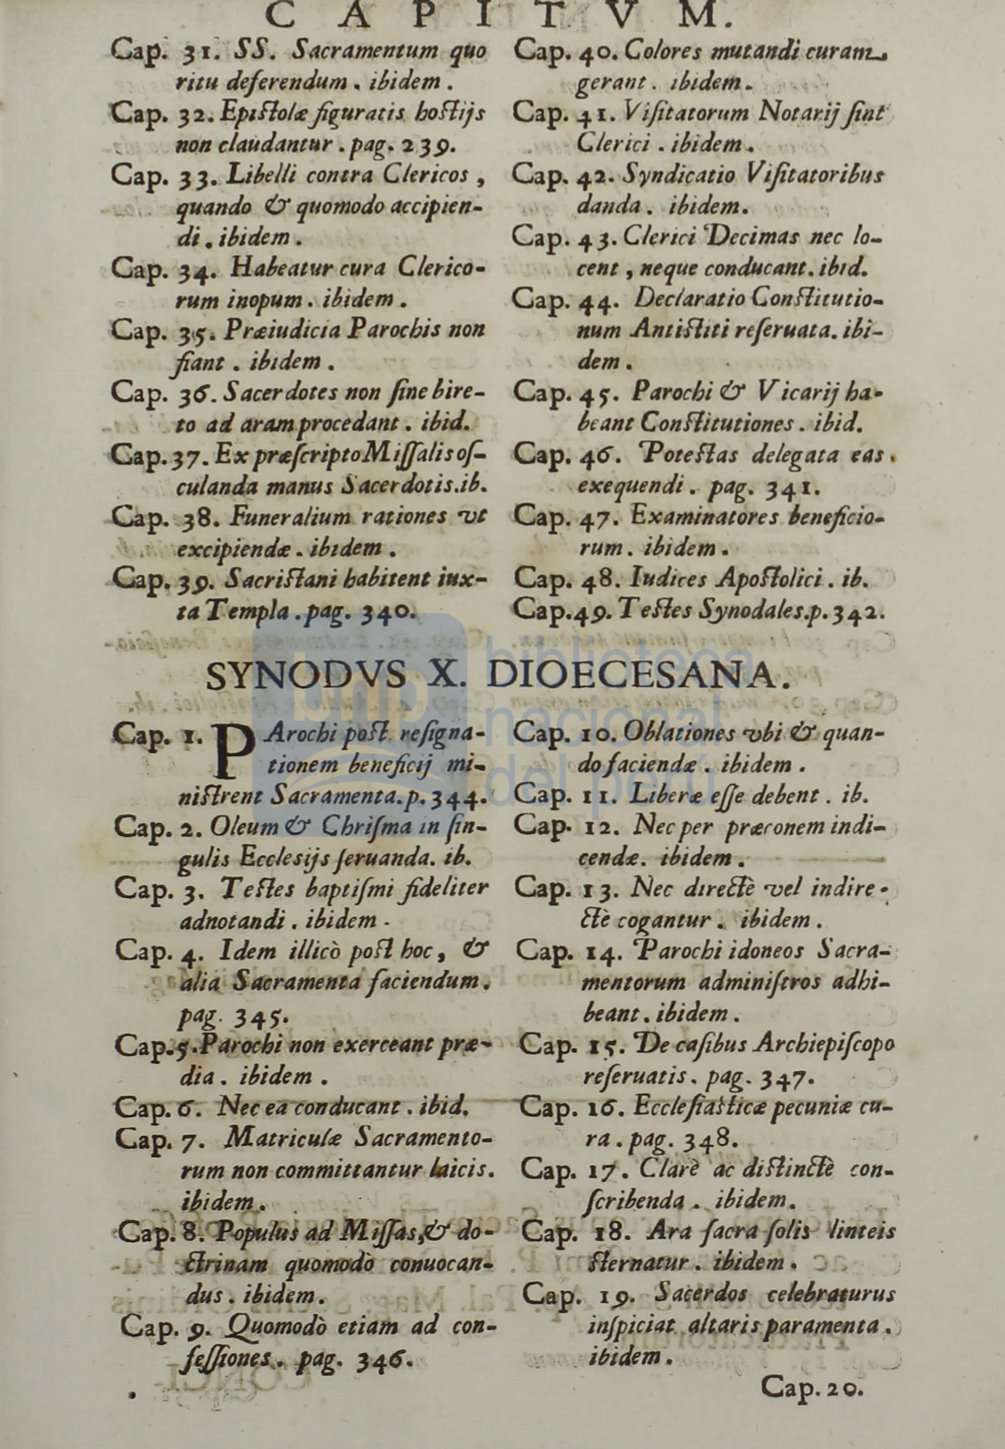 CAPITVM.
Cap. 31. SS. Sacramentum quo
ritu deferendum. ibidem.
Cap. 32. Epiſtolæ figuratis hoſtijs
non claudantur. pag. 239.
Cap. 33. Libelli contra Clericos,
quando & quomodo accipien-
di. ibidem.
Cap. 34. Habeatur cura Clerico-
rum inopum. ibidem.
Cap. 35. Præiudicia Parochis non
fiant. ibidem.
Cap. 36. Sacerdotes non ſine bire-
to ad aram procedant. ibid.
Cap. 37. Ex præſcripto Miſſalis oſ-
culanda manus Sacerdotis. ib.
Cap. 38. Funeralium rationes vt
excipiendæ. ibidem.
Cap. 39. Sacriſtani habitent iux-
ta Templa. pag. 340.
Cap. 40. Colores mutandi curam
gerant. ibidem.
Cap. 41. Viſitatorum Notarij ſint
Clerici. ibidem.
Cap. 42. Syndicatio Viſitatoribus
danda. ibidem.
Cap. 43. Clerici Decimas nec lo-
cent, neque conducant. ibid.
Cap. 44. Declaratio Conſtitutio-
num Antiſtiti reſeruata. ibi-
dem.
Cap. 45. Parochi & Vicarij ha-
beant Conſtitutiones. ibid.
Cap. 46. Poteſtas delegata eas
exequendi. pag. 341.
Cap. 47. Examinatores beneficio-
rum. ibidem.
Cap. 48. Iudices Apoſtolici. ib.
Cap. 49. Teſtes Synodales. p. 342.
SYNODVS X. DIOECESANA.
Cap. 1. PArochi poſt reſigna-
tionem beneficij mi-
niſtrent Sacramenta. p. 344.
Cap. 2. Oleum & Chriſma in ſin-
gulis Eccleſijs ſeruanda. ib.
Cap. 3. Teſtes baptiſmi fideliter
adnotandi. ibidem.
Cap. 4. Idem illicò poſt hoc, &
alia Sacramenta faciendum.
pag. 345.
Cap. 5. Parochi non exerceant præ-
dia. ibidem.
Cap. 6. Nec ea conducant. ibid.
Cap. 7. Matriculæ Sacramento-
rum non committantur laicis.
ibidem.
Cap. 8. Populus ad Miſſas, & do-
ctrinam quomodò conuocan-
dus. ibidem.
Cap. 9. Quomodò etiam ad con-
feſſiones. pag. 346.
Cap. 10. Oblationes vbi & quan-
do faciendæ. ibidem.
Cap. 11. Liberæ eſſe debent. ib.
Cap. 12. Nec per præconem indi-
cendæ. ibidem.
Cap. 13. Nec directè vel indire-
ctè cogantur. ibidem.
Cap. 14. Parochi idoneos Sacra-
mentorum adminiſtros adhi-
beant. ibidem.
Cap. 15. De caſibus Archiepiſcopo
reſeruatis. pag. 347.
Cap. 16. Eccleſiaſticæ pecuniæ cu-
ra. pag. 348.
Cap. 17. Clarè ac diſtinctè con-
ſcribenda. ibidem.
Cap. 18. Ara ſacra ſolis linteis
ſternatur. ibidem.
Cap. 19. Sacerdos celebraturus
inſpiciat altaris paramenta.
ibidem.
Cap. 20.